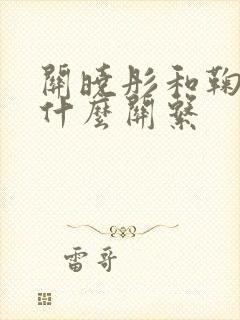 關曉彤和鞠
什麼關繫
雷哥